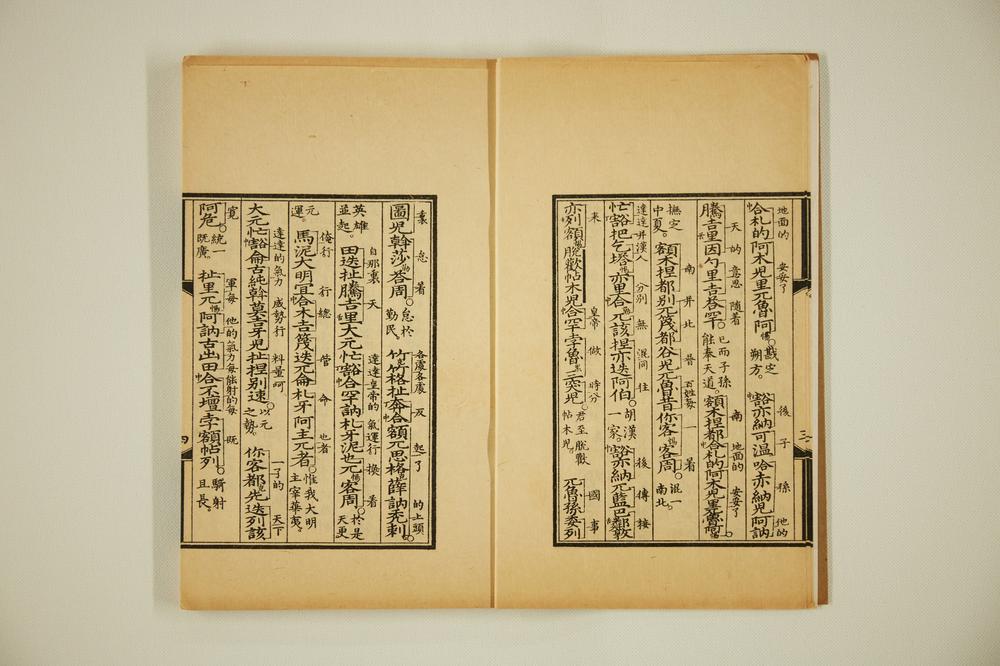 地面的 安安了 後 子 孫 地的
合札的阿木兒里兀魯阿惕。戡定朔方。豁亦納可溫哈赤納兒阿訥
天的 意思 隨着 南 地面的 安安了
騰吉里因勺里吉荅罕。已而子孫能奉天道。額木捏都合札的阿木兒里兀魯阿
南 并 北 昔 百姓每 一 着
撫定中夏。額木捏都別兀篾都谷兀魯昔你客客周。混一南北。
達達并漢人 分別 無 混同 住 後 傳 接
忙豁把乞塔亦里合兀該捏亦迭阿伯。胡漢一家。豁亦納兀藍巴
来 皇帝 做 時分 國 事
亦列額脫歡帖木兒合罕孛魯突兒。君至脫歡帖木兒。兀魯孫委列
三
裏 怠 着 各處各處 及 起了 的上頭
圖兒斡莎荅周。怠於勤民。竹竹格扯奔合額兀思格薛訥禿剌
自那裏 天 達達皇帝的 氣運行 換 着
英雄並起。田迭扯騰吉里大元忙豁合罕訥札牙泥也兀客周。於是天更
俺行 行 總 管 命 也者
元運。馬泥大明宜合木吉篾迭兀侖札牙阿主兀者。惟我大明主宰華夷。
達達的氣力 威勢行 料量呵 一子的 天下
大元忙豁侖古純斡莫吉牙兒扯捏別速。以元之勢。你客都先迭列該
寬 軍每 他的氣力每能射的每 既
阿危。統一既廣。扯里兀阿訥古出田合不壇孛額帖列。騎射且長。
四